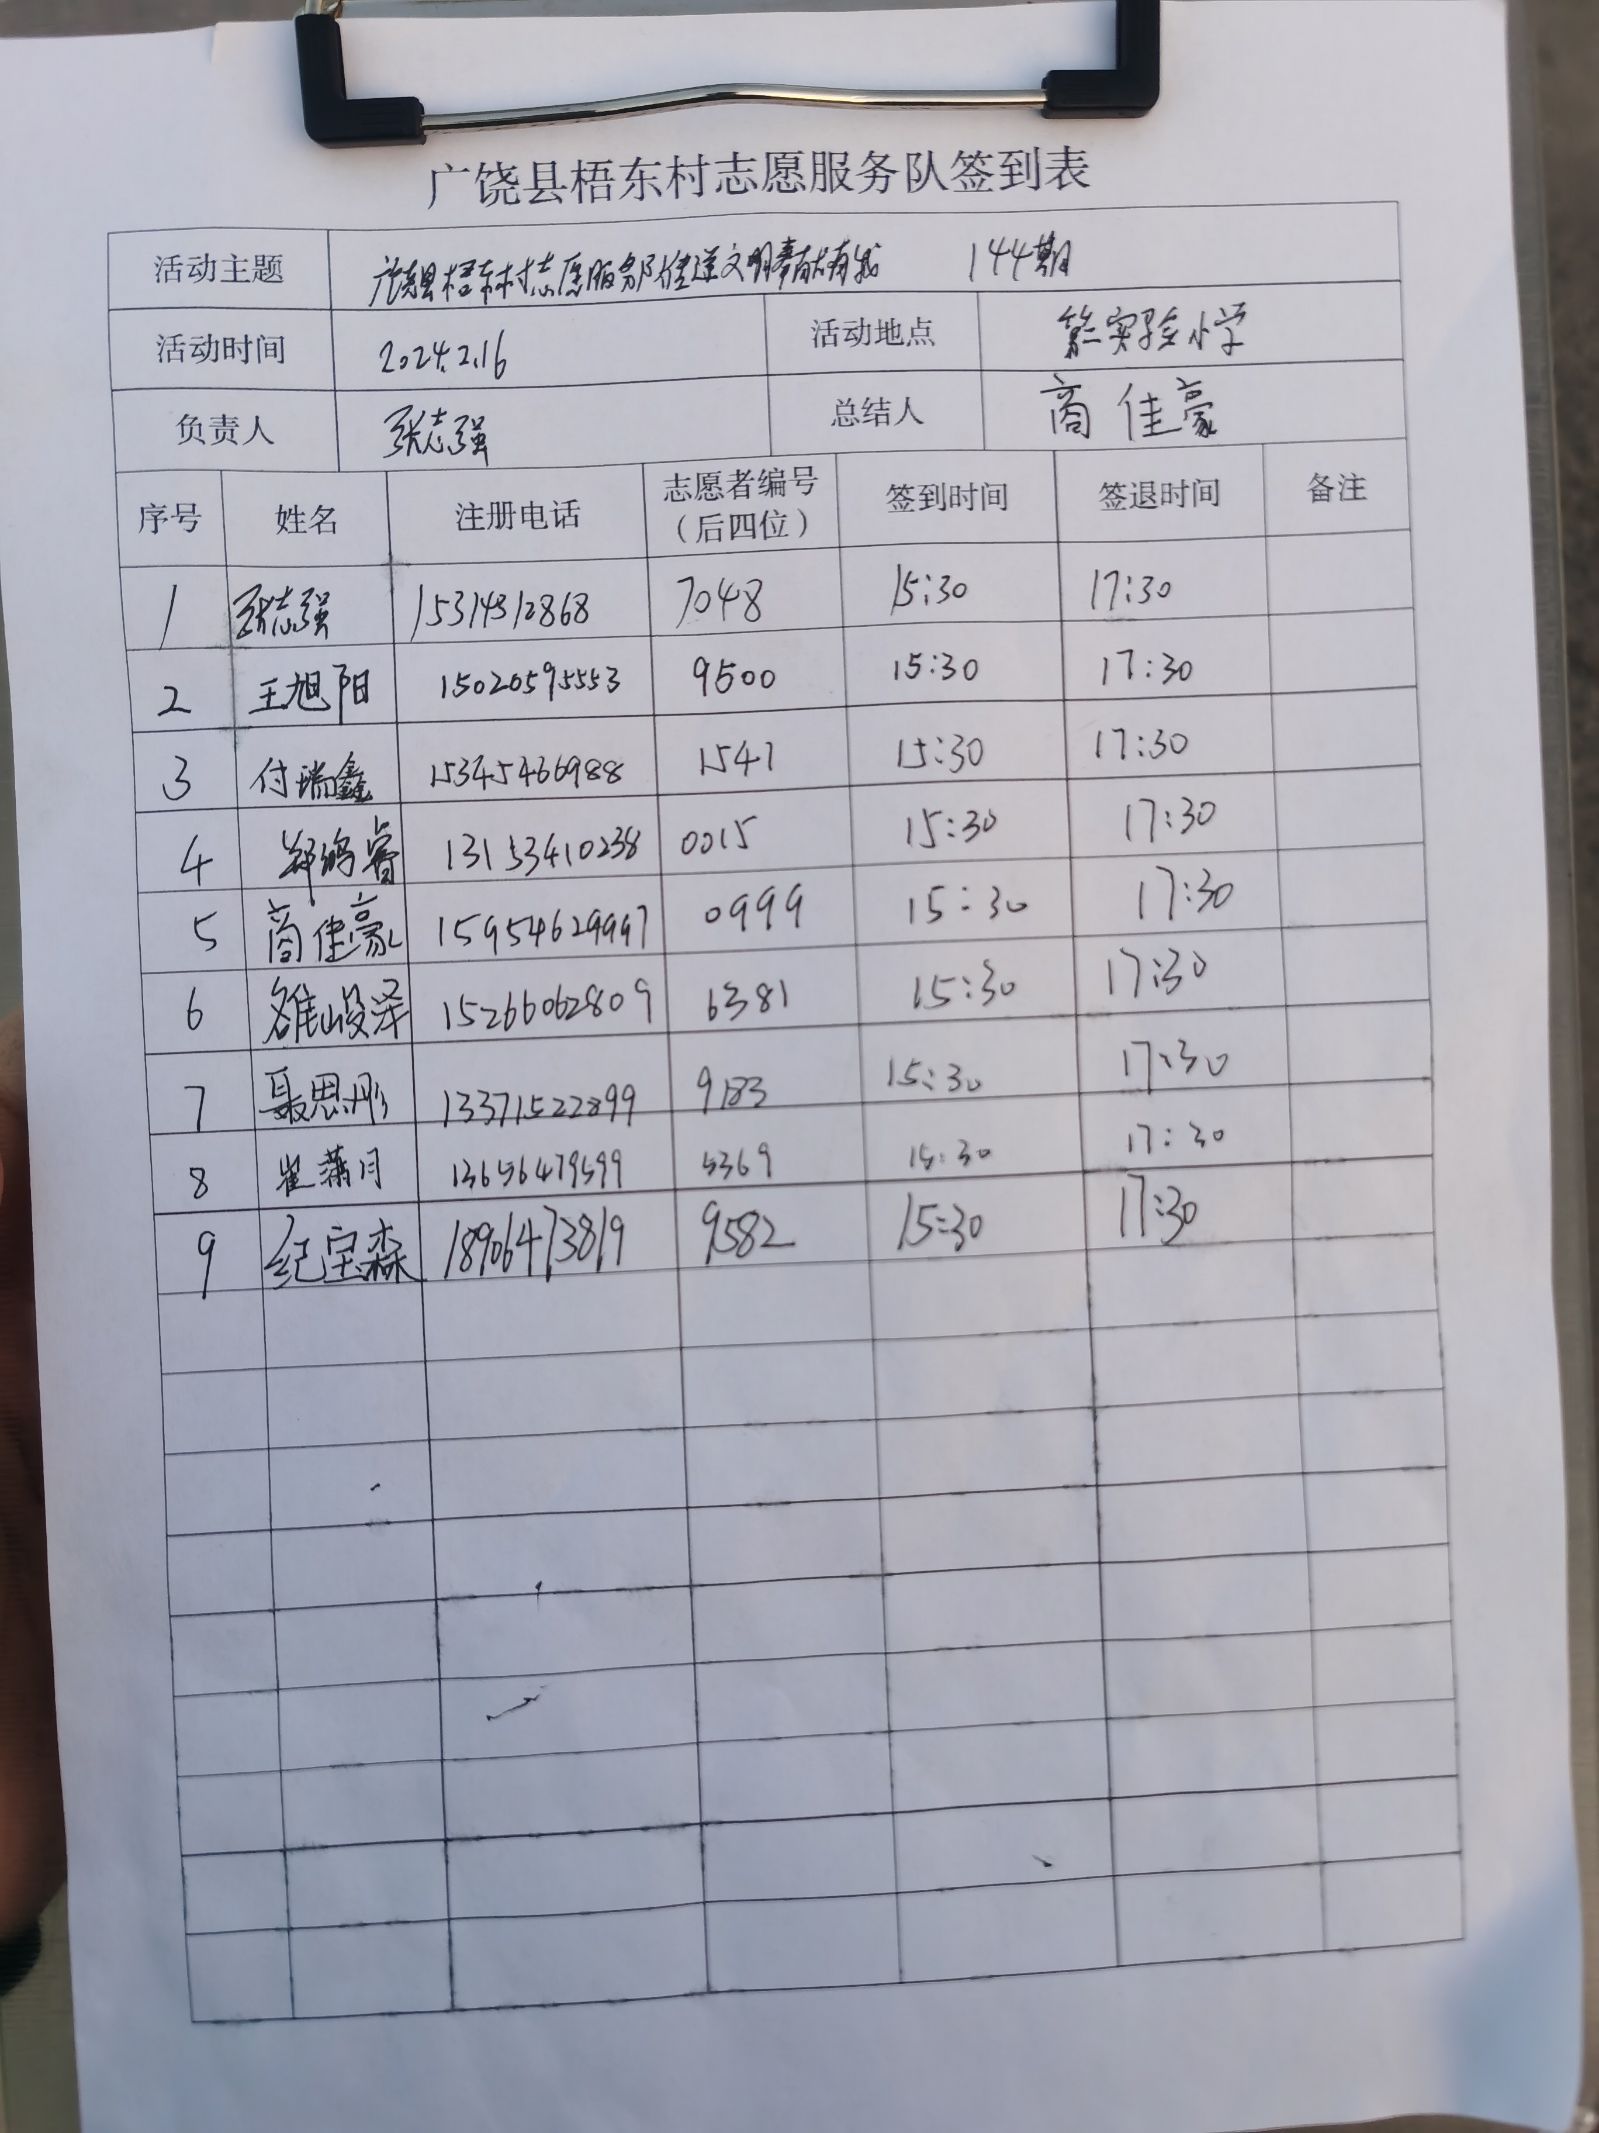 广饶县梧东村志愿服务队签到表
活动主题 广饶县梧东村志愿服务队传递文明奉献有我 144期
活动时间 2024.2.16 活动地点 第二实验小学
负责人 张志强 总结人 商佳豪
序号 姓名 注册电话 志愿者编号 签到时间 签退时间 备注
（后四位）
1 张志强 15314312868 7048 15:30 17:30
2 王旭阳 15020595553 9500 15:30 17:30
3 付瑞鑫 15345466988 1541 15:30 17:30
4 郑鸿睿 13153410238 0015 15:30 17:30
5 商佳豪 15954629997 0999 15:30 17:30
6 雒峻泽 15266062809 6381 15:30 17:30
7 聂思彤 13371522899 9183 15:30 17:30
8 崔蒲月 13656479599 5369 15:30 17:30
9 纪宝森 18906473819 9582 15:30 17:30